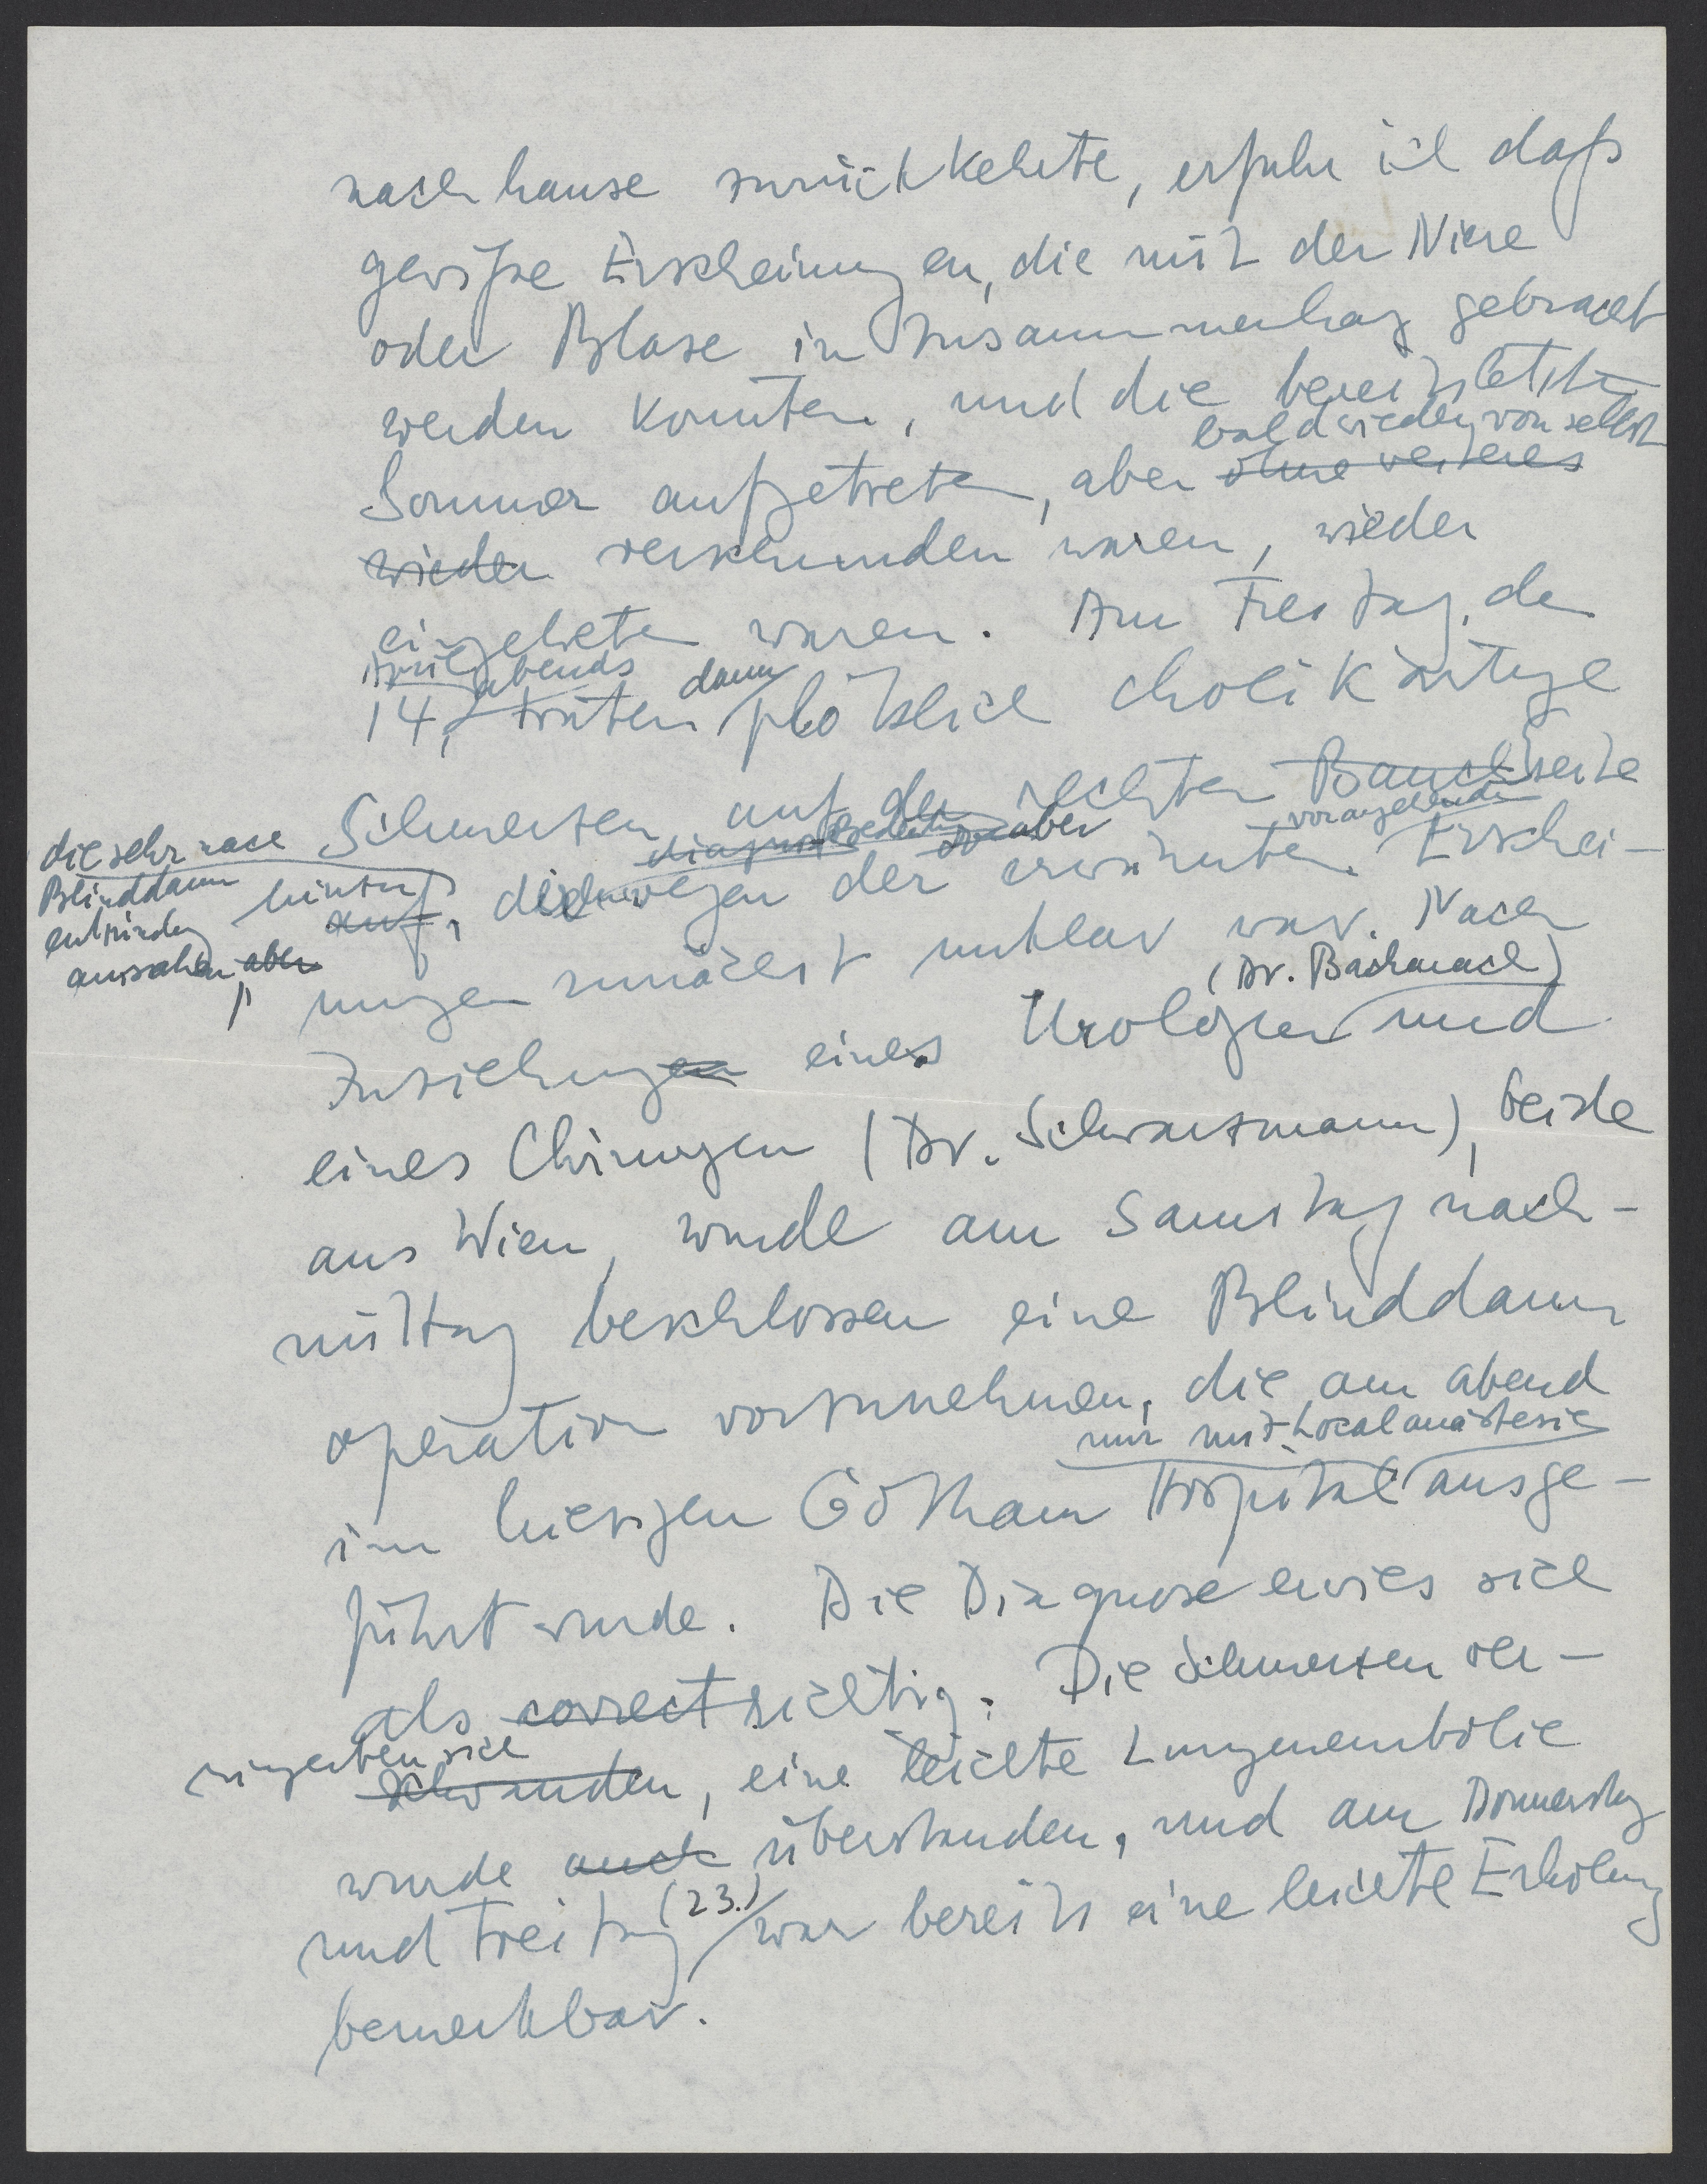 nach hause zurückkehrte, erfuhr ich daß
gewiße Erscheinungen, die mit der Niere
oder Blase in Zusammenhang gebracht
werden konnten, und die bereits letzten
bald wieder von selbst
Sommer aufgetreten, aber ohne weiteres
wieder verschwunden waren, wieder
eingetreten waren. Am Freitag, den
April abends dann
14, traten plötzlich cholikärtige
Schmerzen auf der rechten Bauchseite
die sehr nach
Blinddarm
entzündung
aussahen, aber
vorangehenden
hinzu auf, wegen der erwähnten Erschei-
nungen zunächst unklar war. Nach
(Dr. Bachrach)
Zuziehungen eines Urologen und
eines Chirurgen (Dr. Schwartzmann), beide
aus Wien, wurde am Samstag nach-
mittag beschlossen eine Blinddarm
operation vorzunehmen, die am abend
nur mit Localanästesie
im hiesigen Gotham Hospital ausge-
führt wurde. Die Diagnose erwies sich
als correct richtig. Die Schmerzen ver-
ringerten sich
schwanden, eine leichte Lungenembolie
wurde auch überstanden, und am Donnerstag
(23.)
und Freitag war bereits eine leichte Erholung
bemerkbar.